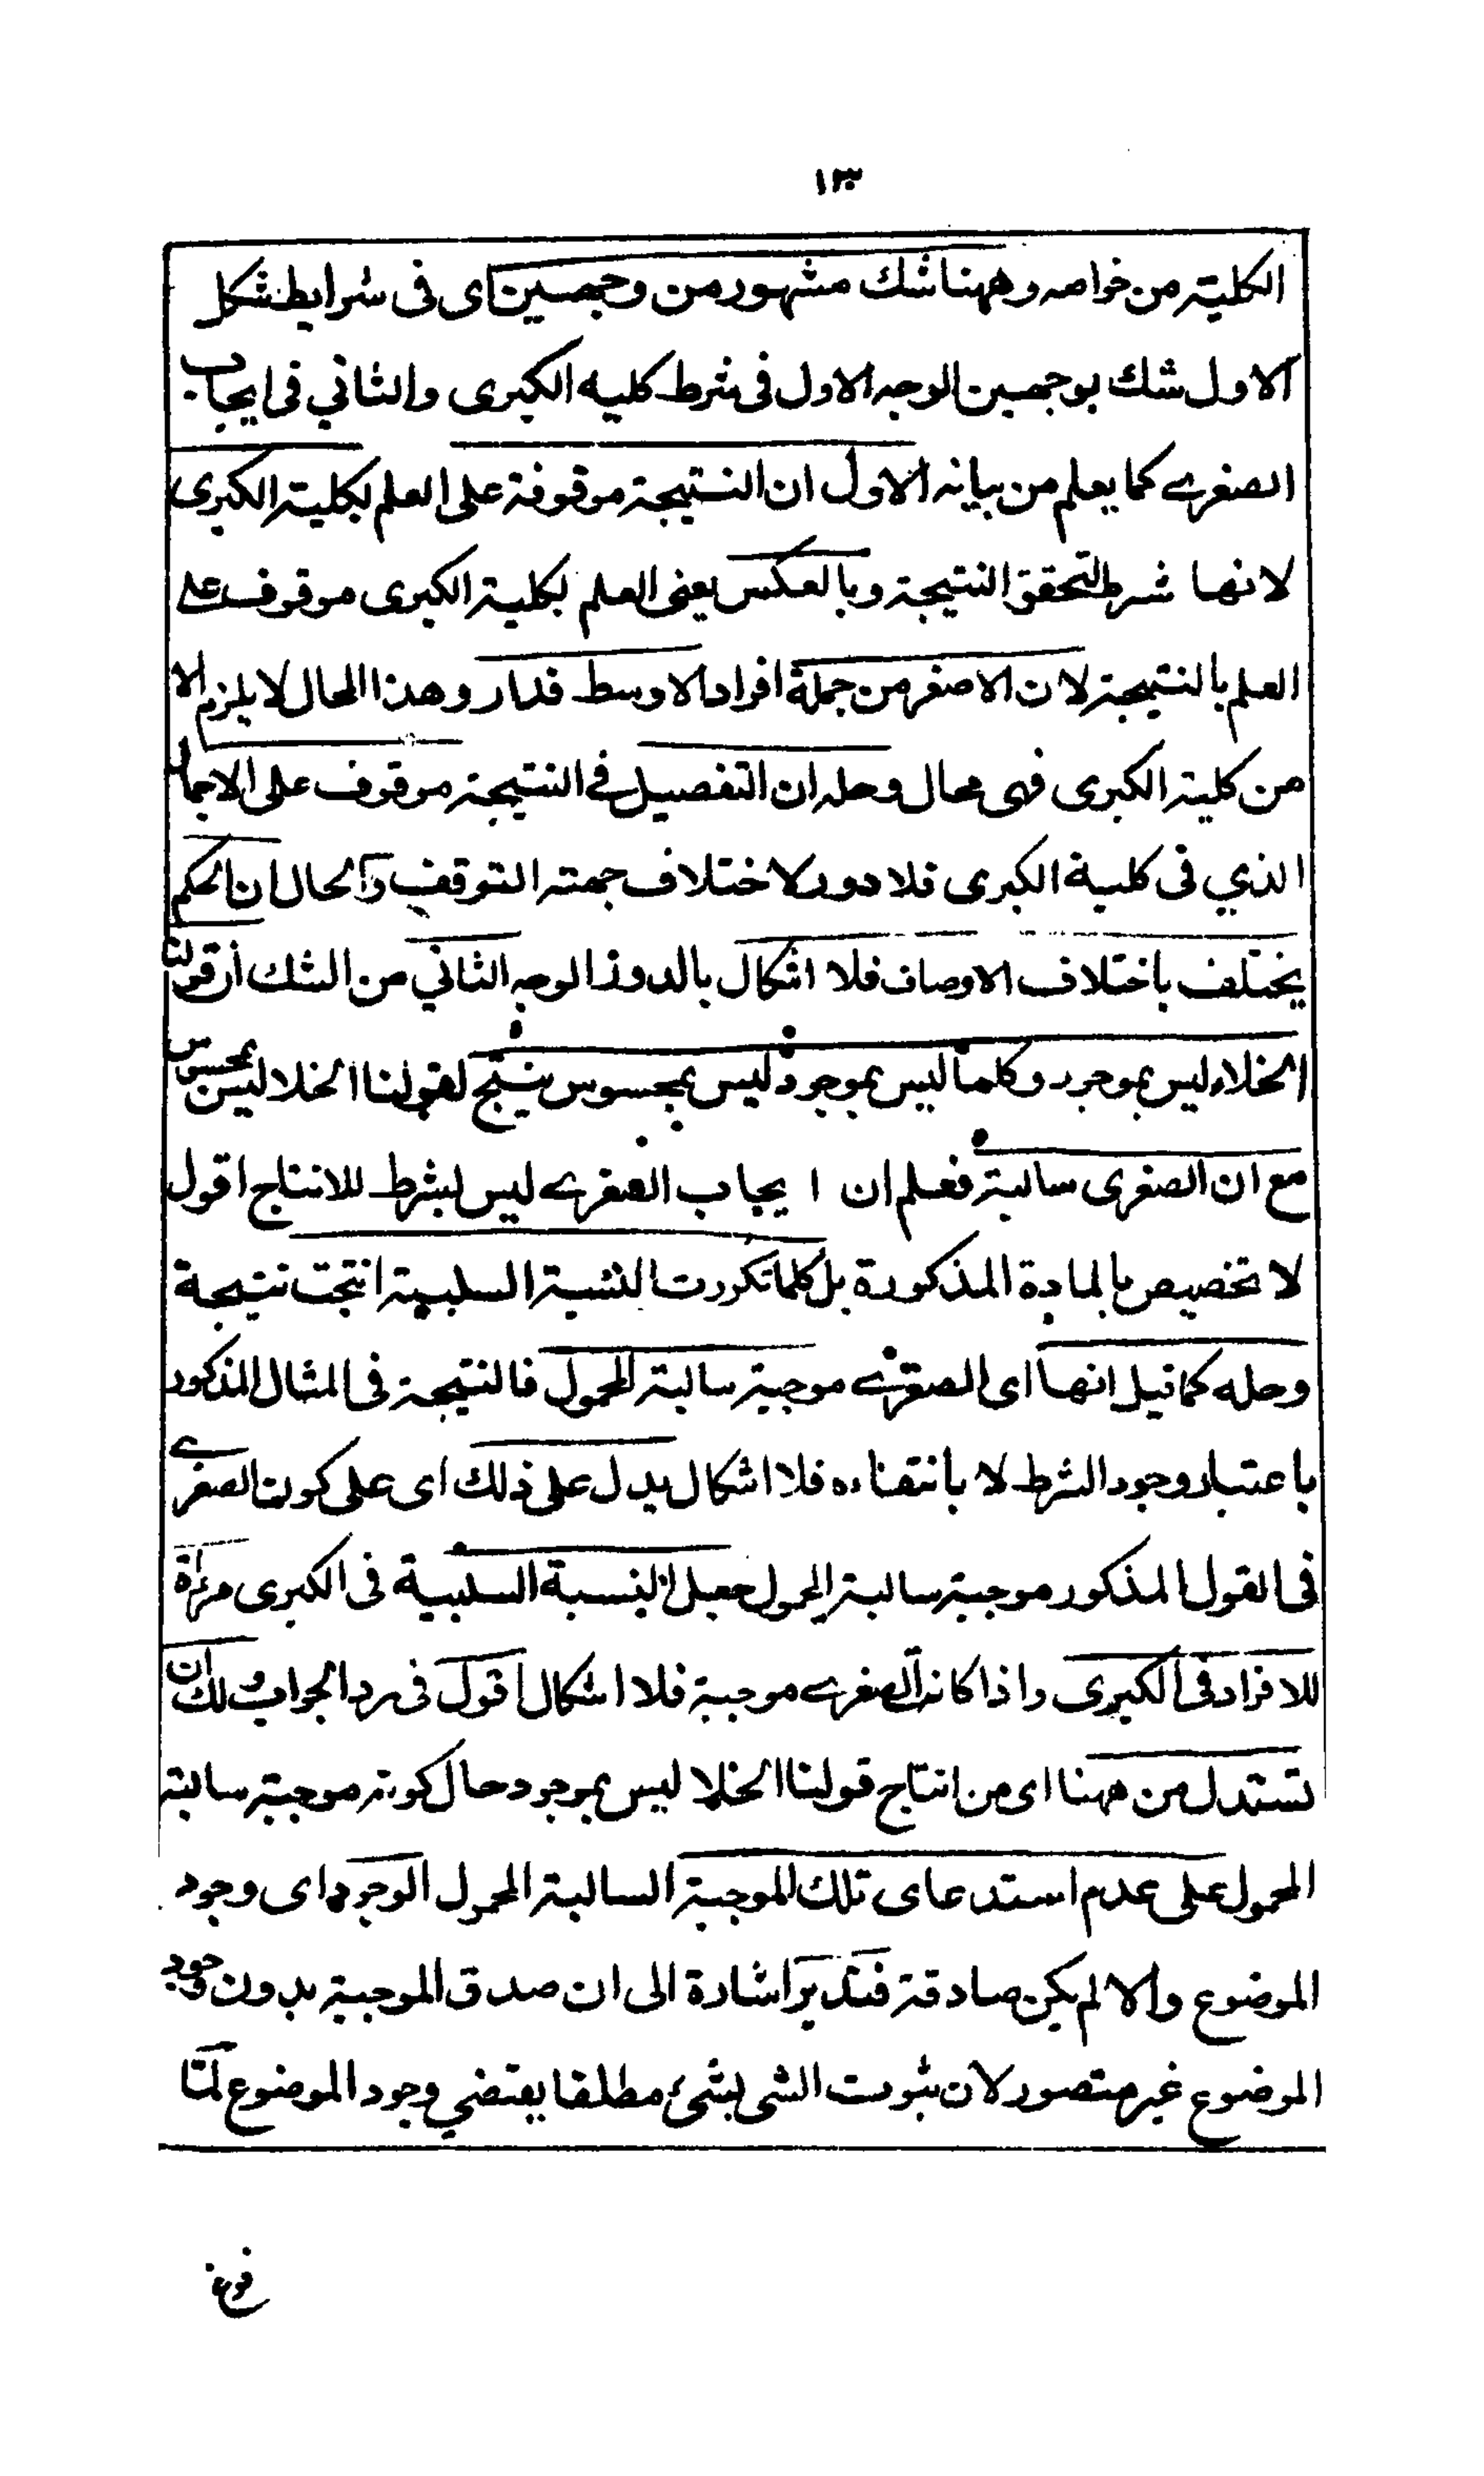 ١٣
الكلية من خواصه وههنا شك مشهور من وجهين اى فى شرايط شكل
الاول شك بوجهين الوجه الاول فى شرط كليه الكبرى والثاني فى ايجاب
الصغرے كما يعلم من بيانه الاول ان النتيجة موقوفة على العلم بكلية الكبرى
لانها شرط لتحقق النتيجة وبالعكس يعنى العلم بكلية الكبرى موقوف على
العلم بالنتيجة لان الاصغر من جملة افراد الاوسط فدار وهذا المحال لا يلزم الا
من كلية الكبرى فهى محال وحله ان التفصيل فے النتيجة موقوف على الاجمال
الذي فى كلية الكبرى فلا دور لاختلاف جهته التوقف والحال ان الحكم
يختلف باختلاف الاوصاف فلا اشكال بالدور الوجه الثاني من الشك ان قولنا
الخلاء ليس بموجود وكلما ليس بموجود ليس بمحسوس ينتج لقولنا الخلا ليس بمحسوس
مع ان الصغرى سالبة فعلم ان ايجاب الصغرے ليس بشرط للانتاج اقول
لا تخصيص بالمادة المذكورة بل كلما تكررت النسبة السلبية انتجت نتيجة
وحله كما قيل انها اى الصغرے موجبة سالبة المحمول فالنتيجة فى المثال المذكور
باعتبار وجود الشرط لا بانتفاءه فلا اشكال يدل على ذلك اى على كون الصغرے
فى القول المذكور موجبة سالبة المحمول جعل النسبة السلبية فى الكبرى مراة
للافراد فى الكبرى واذا كانت الصغرے موجبة فلا اشكال اقول فى رد الجواب ولك ان
تستدل من ههنا اى من انتاج قولنا الخلا ليس بموجود حال كونه موجبة سالبة
المحمول على عدم استدعاى تلك الموجبة السالبة المحمول الوجود اى وجود
الموضوع والا لم يكن صادقة فتدبر اشارة الى ان صدق الموجبة بدون وجود
الموضوع غير متصور لان ثبوت الشى بشئ مطلقا يقتضي وجود الموضوع لما